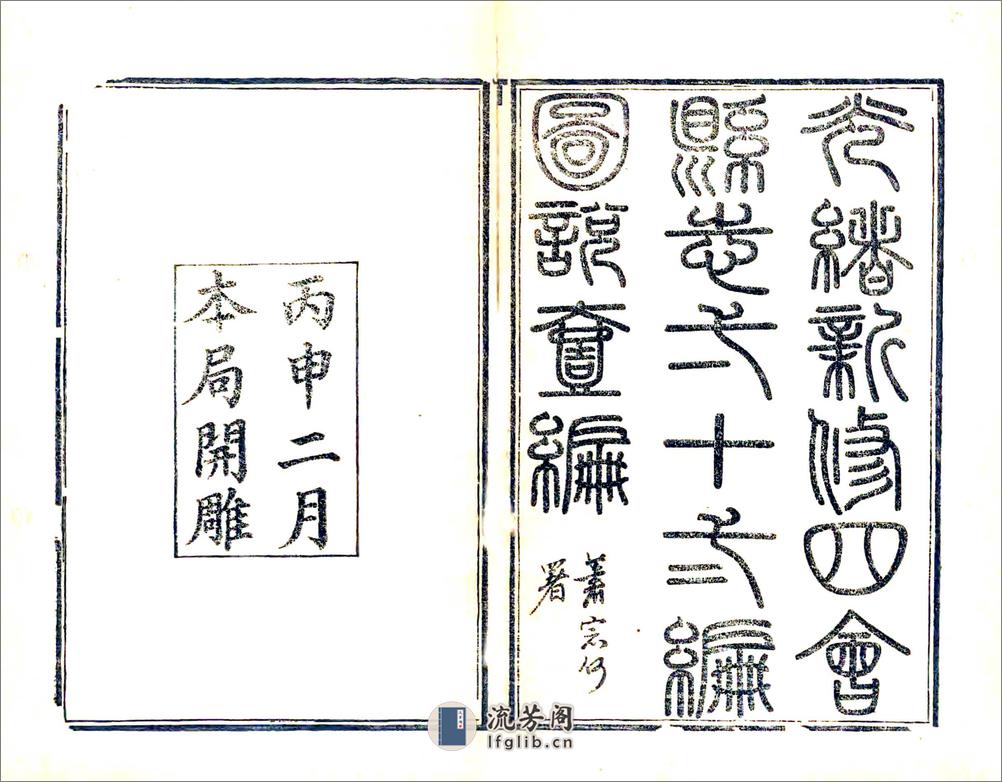 光緒新修四會
縣志弍十弎編
圖說壹編
署
丙申二月
本局開雕
流芳阁
lfglib.cn